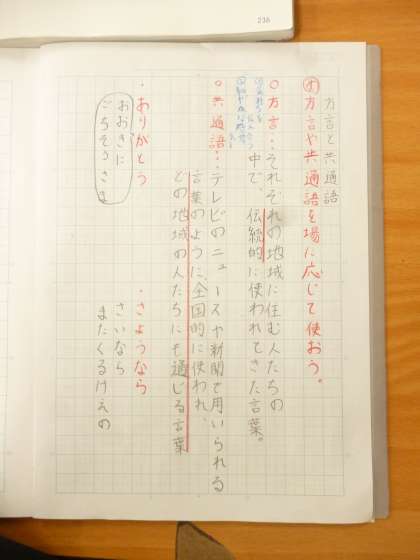 236
方言と共通語
め方言や共通語を場に応じて使おう。
○方言・・・それぞれの地域に住む人たちの
中で、伝統的に使われてきた言葉。
○共通語・・・テレビのニュースや新聞で用いられる
言葉のように、全国的に使われ、
どの地域の人たちにも通じる言葉
・ありがとう
おおきに
ごちそうさま
・さようなら
さいなら
またくるけえの